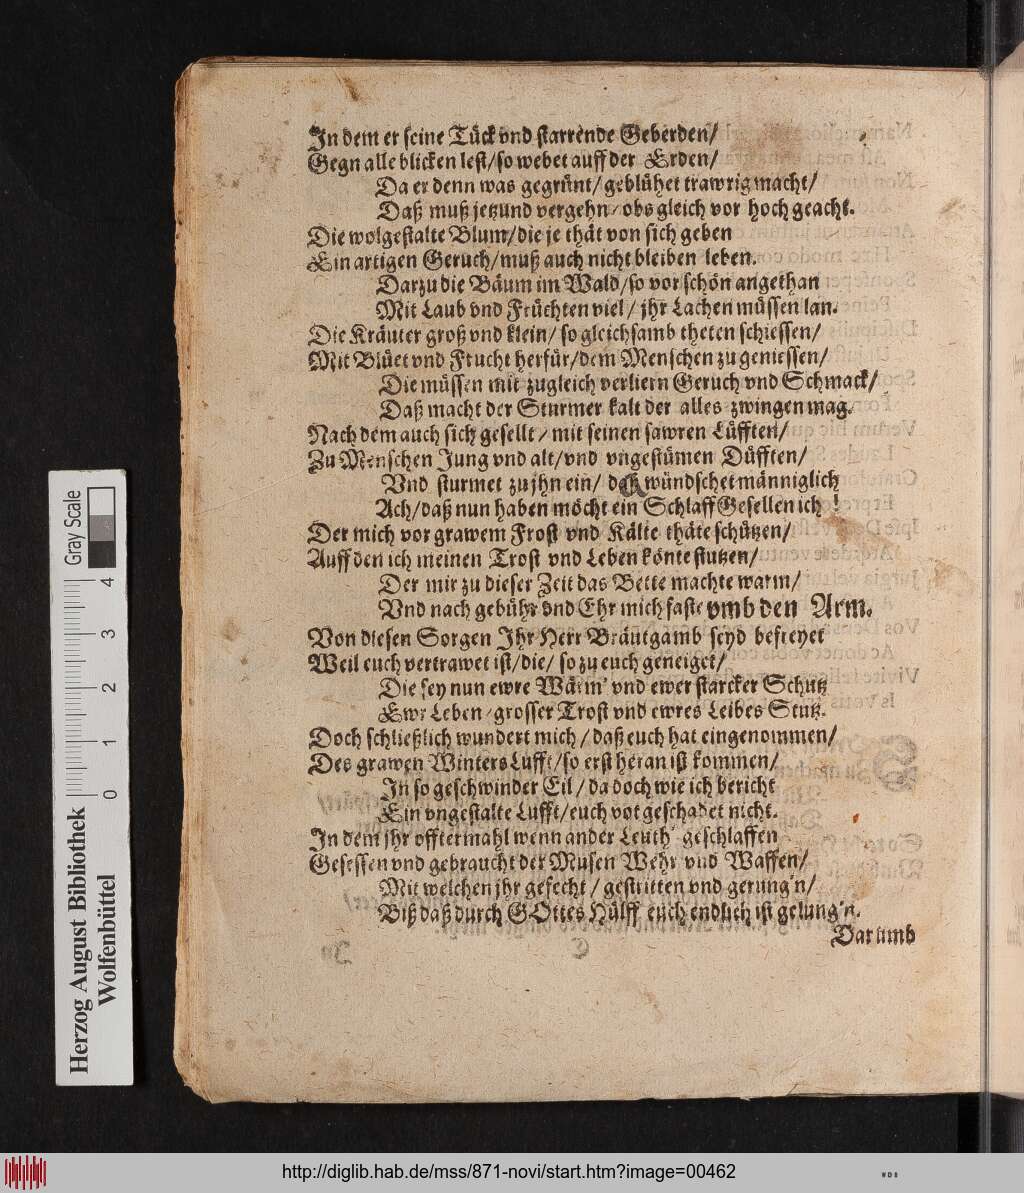 In dem er seine Tück vnd starrende Geberden/
Gegn alle blicken lest/so webet auff der Erden/
Da er denn was gegrünt/geblühet trawrig macht/
Daß muß jetzund vergehn/obs gleich vor hoch geacht.
Die wolgestalte Blum/die je thät von sich geben
Ein artigen Geruch/muß auch nicht bleiben leben.
Darzu die Bäum im Wald/so vor schön angethan
Mit Laub vnd Früchten viel/jhr Lachen müssen lan.
Die Kräuter groß vnd klein/so gleichsamb theten schiessen/
Mit Blüet vnd Frucht herfür/dem Menschen zu geniessen/
Die müssen mit zugleich verliern Geruch vnd Schmack/
Daß macht der Sturmer kalt der alles zwingen mag.
Nach dem auch sich gesellt/mit seinen sawren Lüfften/
Zu Menschen Jung vnd alt/vnd vngestümen Düfften/
Vnd sturmet zu jhn ein/ wündschet männiglich
Ach/daß nun haben möcht ein Schlaff Gesellen ich!
Der mich vor grawem Frost vnd Kälte thäte schützen/
Auff den ich meinen Trost vnd Leben könte stutzen/
Der mir zu dieser Zeit das Bette machte warm/
Vnd nach gebühr vnd Ehr mich faste vmb den Arm.
Von diesen Sorgen Ihr Herr Bräutgamb seyd befreyet
Weil euch vertrawet ist/die/so zu euch geneiget/
Die sey nun ewre Wärm' vnd ewer starcker Schutz
Ewr Leben/grosser Trost vnd ewres Leibes Stutz.
Doch schließlich wundert mich/daß euch hat eingenommen/
Des grawen Winters Lufft/so erst heran ist kommen/
In so geschwinder Eil/da doch wie ich bericht
Ein vngestalte Lufft/euch vor geschadet nicht.
In dem jhr offtermahl wenn ander Leuth' geschlaffen
Gesessen vnd gebraucht der Musen Wehr vnd Waffen/
Mit welchen jhr gefecht/gestritten vnd gerung'n/
Biß daß durch GOttes Hülff euch endlich ist gelung'n.
Darumb
Herzog August Bibliothek
Wolfenbüttel
Gray Scale
0 1 2 3 4
http://diglib.hab.de/mss/871-novi/start.htm?image=00462